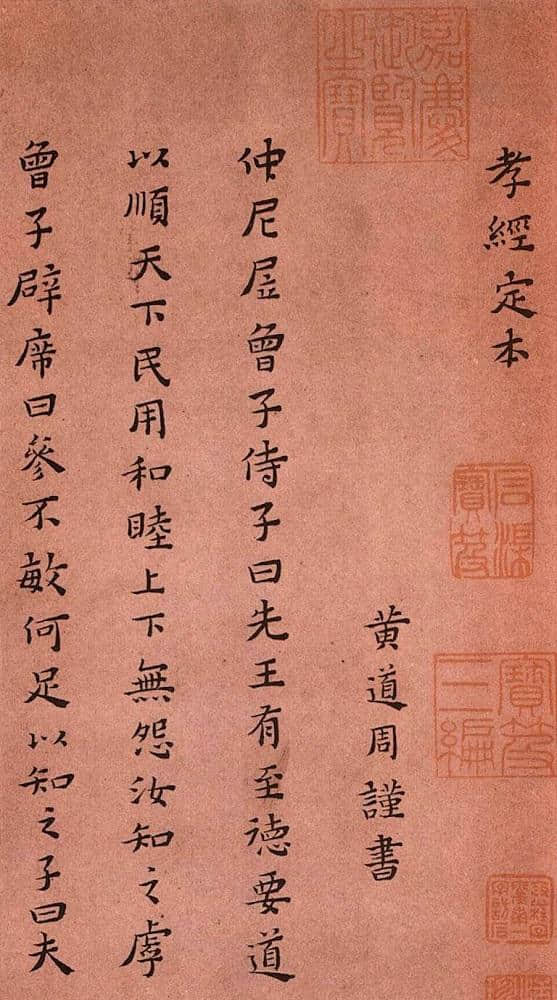 孝經定本
黄道周謹書
仲尼凥曾子侍子曰先王有至德要道
以順天下民用和睦上下無怨汝知之虖
曾子辟席曰參不敏何足以知之子曰夫
嘉慶御覽之寶
石渠寶笈
寶笈三編